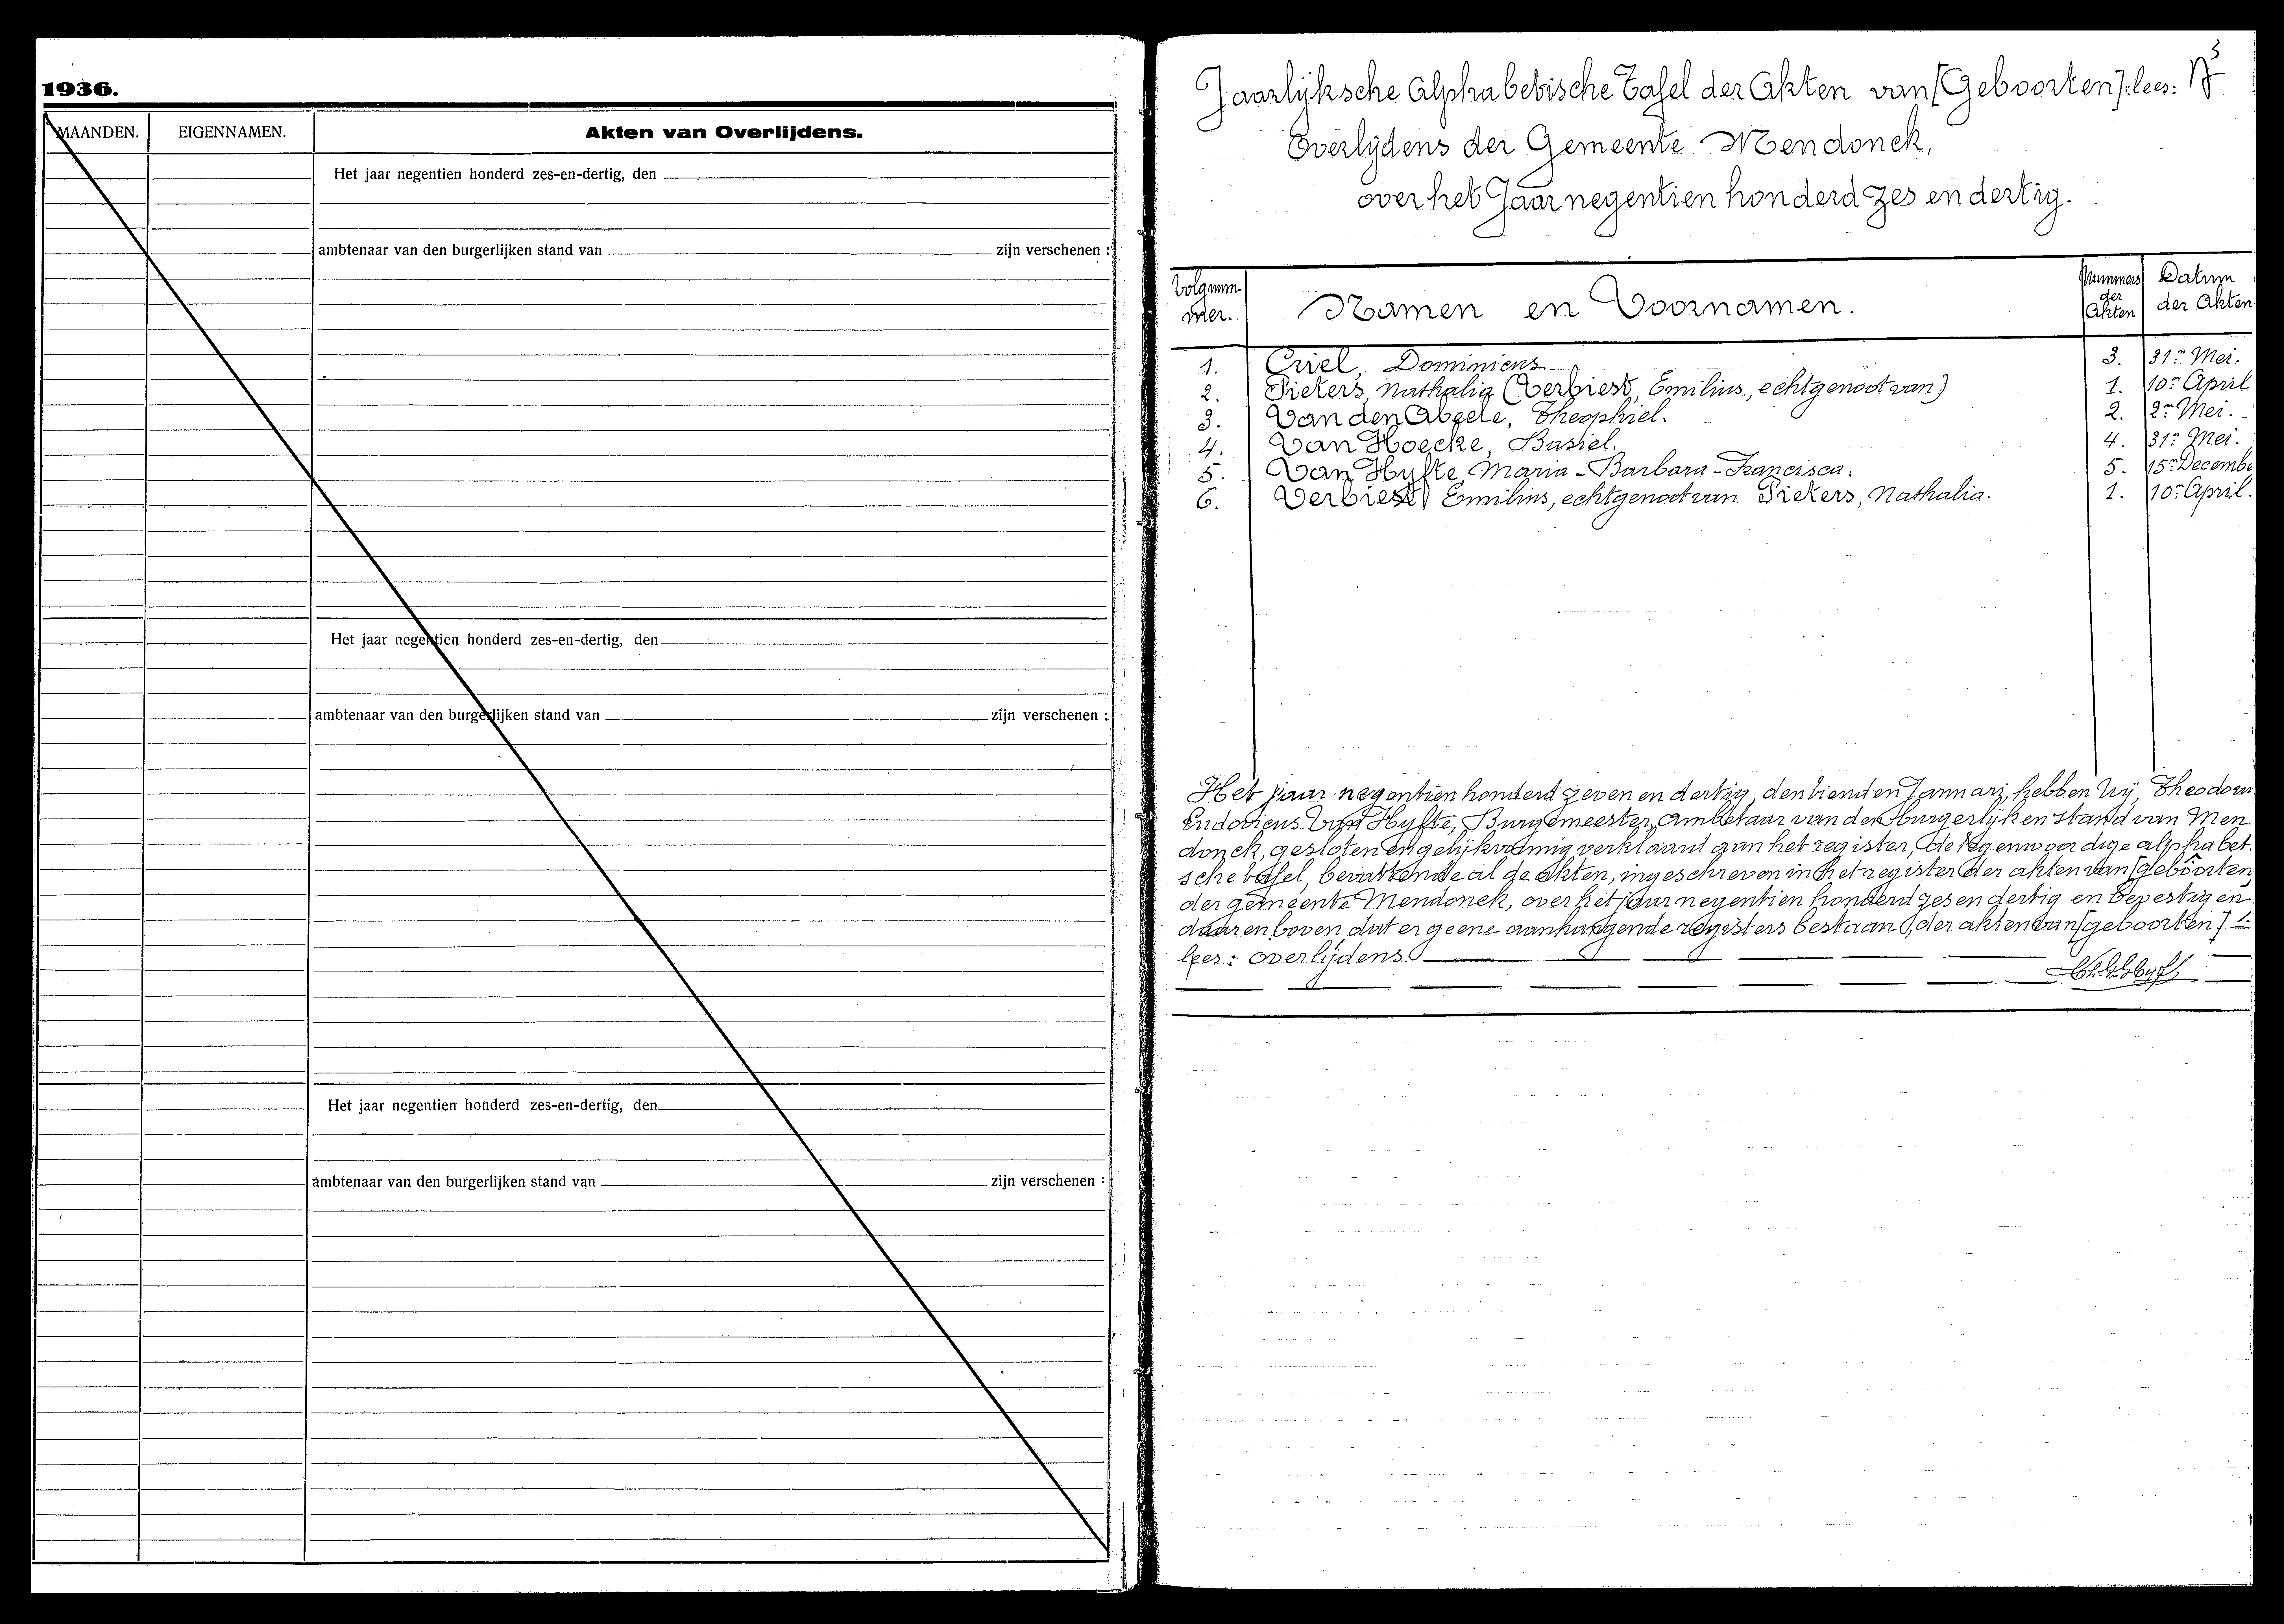 1936.
MAANDEN. EIGENNAMEN. Akten van Overlijdens.
Het jaar negentien honderd zes-en-dertig, den
ambtenaar van den burgerlijken stand van zijn verschenen :
Het jaar negentien honderd zes-en-dertig, den
ambtenaar van den burgerlijken stand van zijn verschenen :
Het jaar negentien honderd zes-en-dertig, den
ambtenaar van den burgerlijken stand van zijn verschenen :
3
Jaarlijksche Alphabetische Tafel der Akten van [Geboorten] lees:
Overlijdens der Gemeente Mendonck,
over het Jaar negentien honderd zes en dertig.
Volgnum
mer. Namen en Voornamen. Nummers der Akten Datum der Akten
1. Criel, Dominicus 3. 31n Mei.
2. Pieters, Nathalia (Verbiest, Emilius, echtgenoot van) 1. 10n April
3. Van den Abeele, Theophiel. 2. 2n Mei.
4. Van Hoecke, Basiel. 4. 31n Mei.
5. Van Hyfte, Maria-Barbara-Francisca. 5. 15n Decembe
6. Verbiest, Emilius, echtgenoot van Pieters, Nathalia. 1. 10n April.
Het jaar negentien honderd zeven en dertig, den tienden Januari, hebben Wij, Theodoor
Ludovicus Van Hyfte, Burgemeester, Ambtenaar van den burgerlijken stand van Men
donck, gesloten en gelijkvormig verklaard aan het register, de tegenwoordige alphabet
sche tafel, bevattende al de akten, ingeschreven in het register der akten van [geboorten
der gemeente Mendonck, over het jaar negentien honderd zes en dertig en bevestigen
daarenboven dat er geene aanhangende registers bestaan, der akten van [geboorten]
lees: overlijdens.